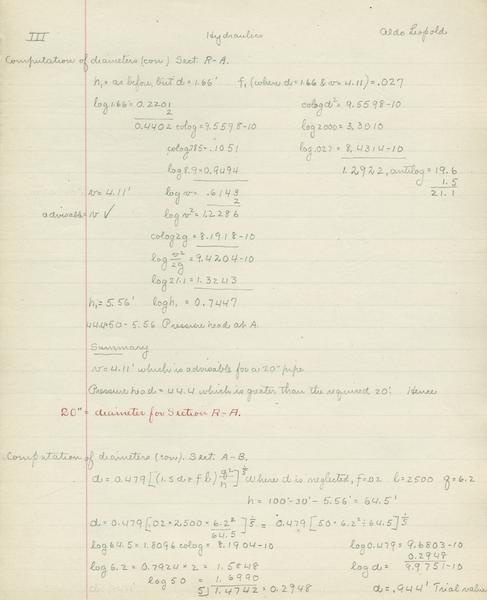 III Hydraulics Aldo Leopold
Computation of diameters (con) Sect. R-A.
h₁ = as before, but d = 1.66' f₁ (where d = 1.66 & v = 4.11) = .027
log 1.66 = 0.2201 colog d² = 9.5598-10
2 log 2000 = 3.3010
0.4402 colog = 9.5598-10 log .027 = 8.4314-10
colog 785 = .1051 1.2922, antilog = 19.6
log 8.9 = 0.9494 1.5
21.1
v = 4.11' log v = .6143
2
advisable v ✓ log v² = 1.2286
colog 2g = 8.1918-10
log v²/2g = 9.4204-10
log 21.1 = 1.3243
h₁ = 5.56' log h₁ = 0.7447
44.4 = 50 - 5.56 Pressure head at A.
Summary
v = 4.11' which is advisable for a 20" pipe
Pressure head = 44.4 which is greater than the required 20'. Hence
20" = diameter for Section R-A.
Computation of diameters (con). Sect. A-B.
d = 0.479 [(1.5d + fl) q²/h]^1/5 Where d is neglected, f = .02 l = 2500 q = 6.2
h = 100' - 30' - 5.56' = 64.5'
d = 0.479 [.02 × 2.500 × 6.2²/64.5]^1/5 = 0.479 [50 × 6.2² ÷ 64.5]^1/5
log 64.5 = 1.8096 colog = 8.1904-10 log 0.479 = 9.6803-10
0.2948
log 6.2 = 0.7924 × 2 = 1.5848 log d = 9.9751-10
log 50 = 1.6990
5) 1.4742 = 0.2948 d = .944' Trial value